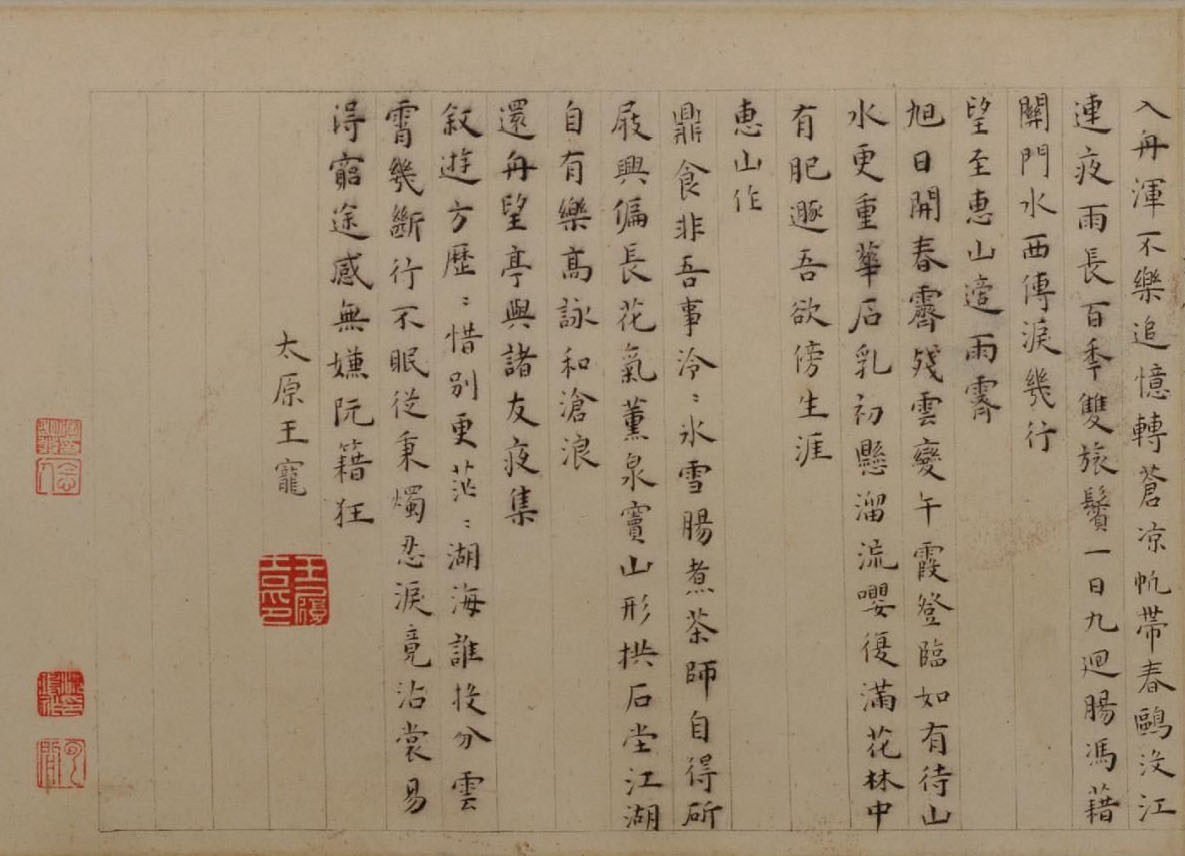 入舟渾不樂追憶轉蒼凉帆帶春鷗没江
連夜雨長百年雙旅鬢一日九迴腸馮藉
關門水西傳淚幾行
望至惠山遣雨霽
旭日開春霽殘雲變午霞登臨如有待山
水更重華石乳初懸溜流嚶復滿花林中
有肥遯吾欲傍生涯
惠山作
鼎食非吾事泠〻冰雪腸煮茶師自得斫
屐興偏長花氣薰泉竇山形拱石堂江湖
自有樂高詠和滄浪
還舟望亭與諸友夜集
敘遊方歷〻惜別更茫〻湖海誰投分雲
霄幾斷行不眠從秉燭忍淚竟沾裳易
得窮途感無嫌阮籍狂
太原王寵